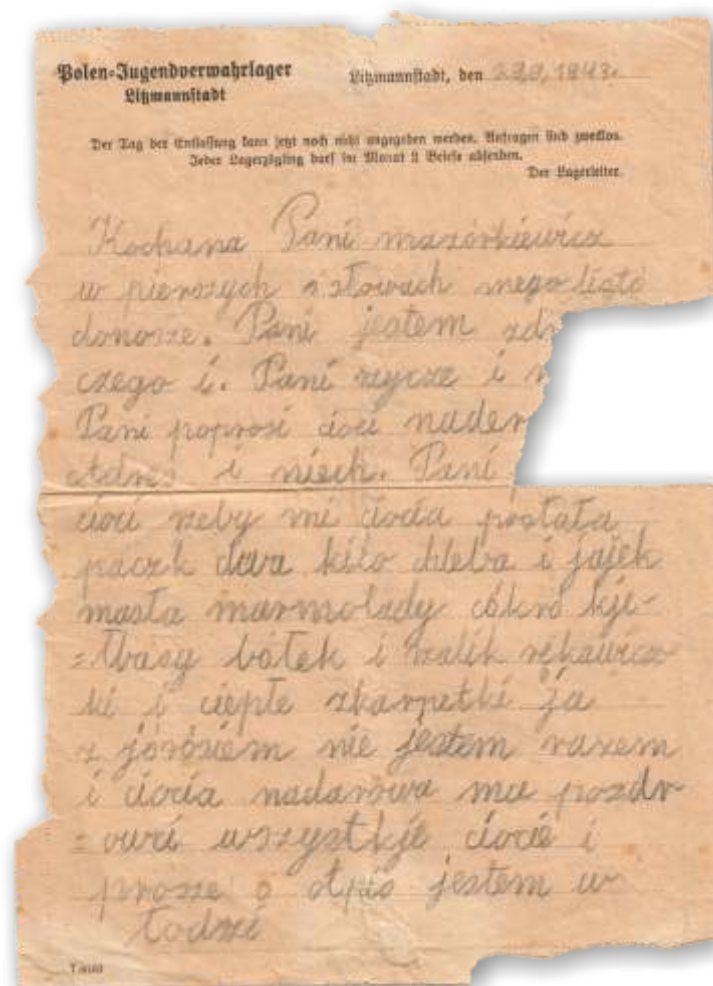 Polen-Jugendverwahrlager
Litzmannstadt
Litzmannstadt, den 1943.
Der Tag der Entlassung kann jetzt noch nicht angegeben werden. Anfragen sind zwecklos.
Jeder Lagerzögling darf im Monat 2 Briefe absenden.
Der Lagerleiter.
Kochana Pani mazórkiewicz
w pierszych słowach mego listó
donosze. Pani jestem zdr
czego i. Pani rzycze i n
Pani poprosi cioci nader
Adres i niech. Pani
cioci rzeby mi ciocia póstała
paczk dwa kilo chleba i jajek
masła marmolady cókró kje-
=łbasy bółek i szalik rękawicz
ki i ciepłe zkarpetki ja
z józóziem nie jestem razem
i ciocia nadarowa ma pozdr
=owci wszystkje ciocie i
prosze o otpis jestem w
Łodzi